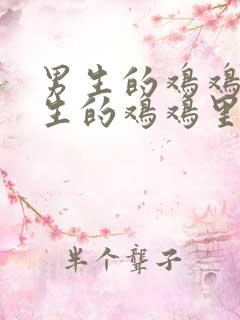 男生的鸡鸡
生的鸡鸡里
半个聋子